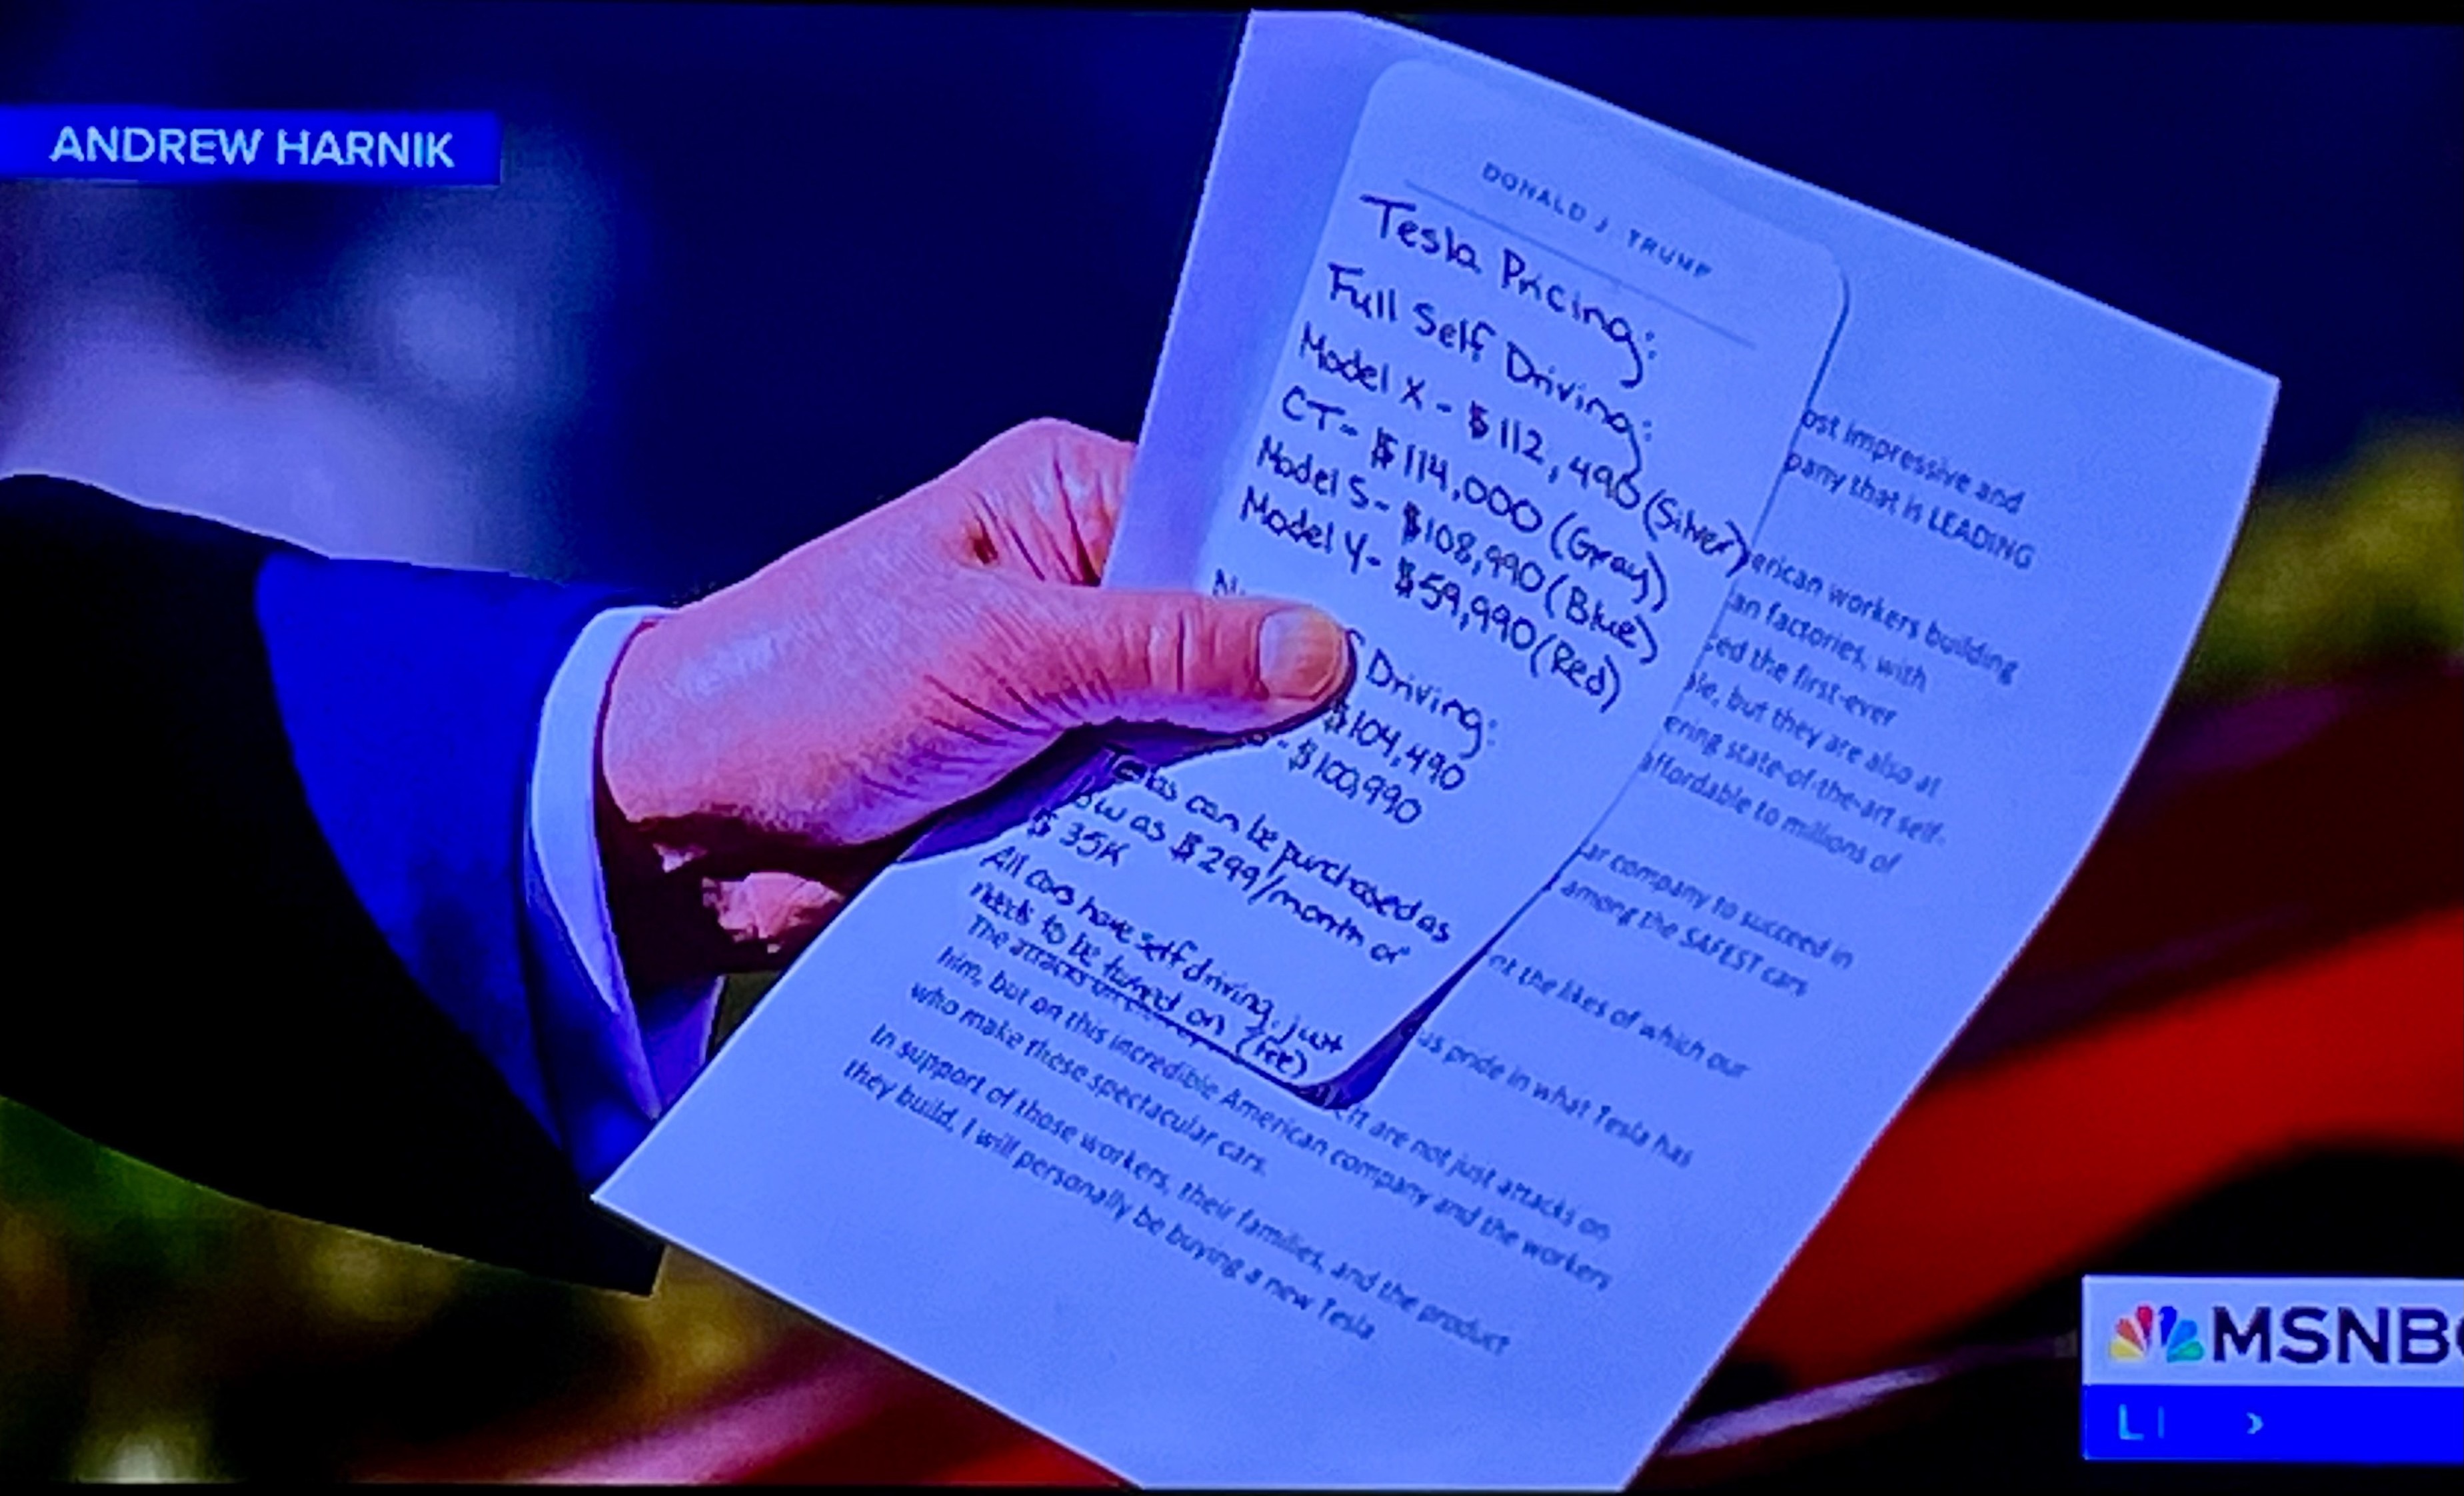 ANDREW HARNIK
DONALD J. TRUMP
Tesla Pricing:
Full Self Driving:
Model X - $112,490 (Silver)
CT - $114,000 (Gray)
Model S - $108,990 (Blue)
Model Y - $59,990 (Red)
Driving:
$104,490
- $100,990
Teslas can be purchased as
low as $299/month or
$35K
All cars have self driving, just
needs to be turned on (fee)
ost impressive and
pany that is LEADING
erican workers building
an factories, with
ced the first-ever
ble, but they are also at
ering state-of-the-art self-
affordable to millions of
ar company to succeed in
among the SAFEST cars
nt the likes of which our
us pride in what Tesla has
The attacks are not just attacks on
him, but on this incredible American company and the workers
who make these spectacular cars.
In support of those workers, their families, and the product
they build, I will personally be buying a new Tesla
MSNB